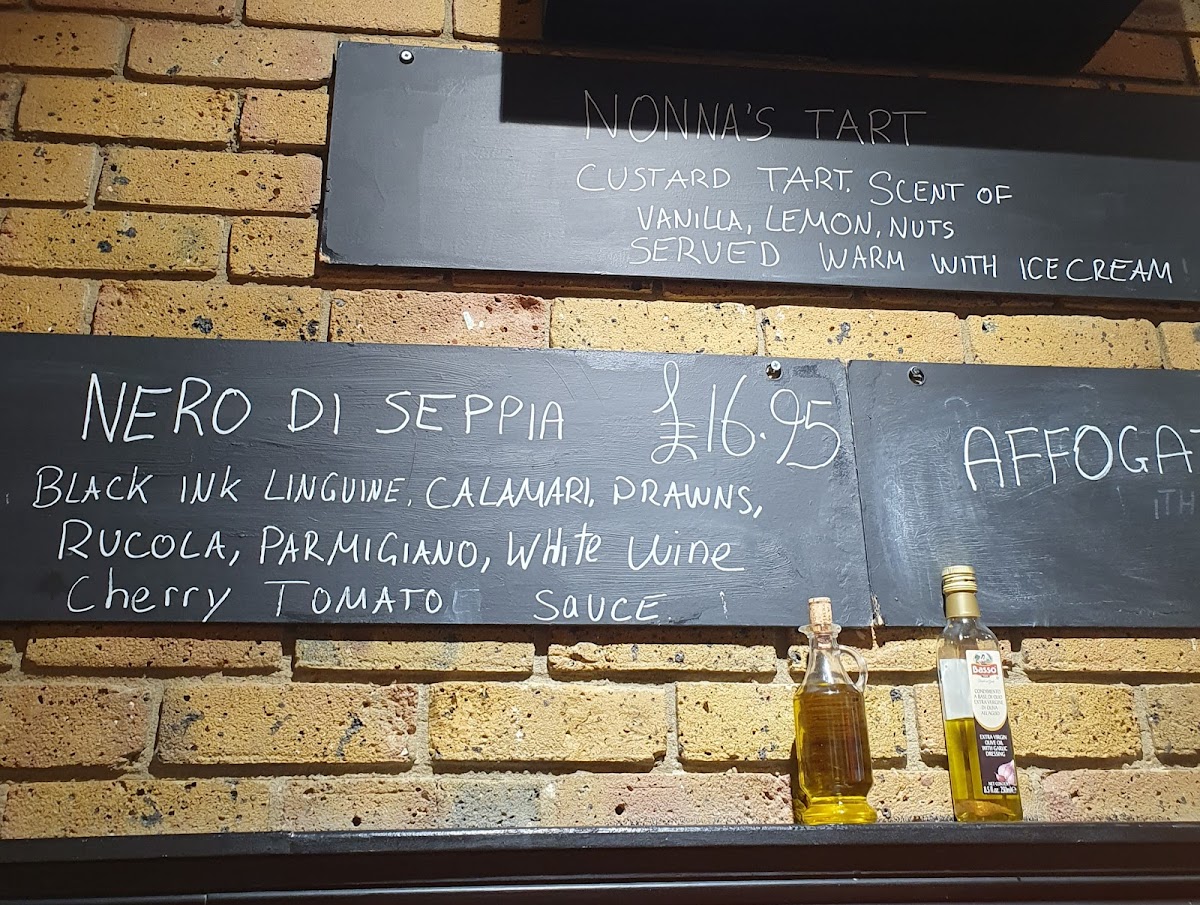 NONNA'S TART
CUSTARD TART. SCENT OF
VANILLA, LEMON, NUTS
SERVED WARM WITH ICE CREAM
NERO DI SEPPIA £16.95
BLACK INK LINGUINE, CALAMARI, PRAWNS,
RUCOLA, PARMIGIANO, WHite Wine
Cherry TOMATO SAUCE.
AFFOGAT
Basso
CONDIMENTO
A BASE DI OLIO
EXTRA VERGINE
DI OLIVA
ALL'AGLIO
EXTRA VIRGIN
OLIVE OIL
WITH GARLIC
DRESSING
8.5 fl.oz. 250ml℮